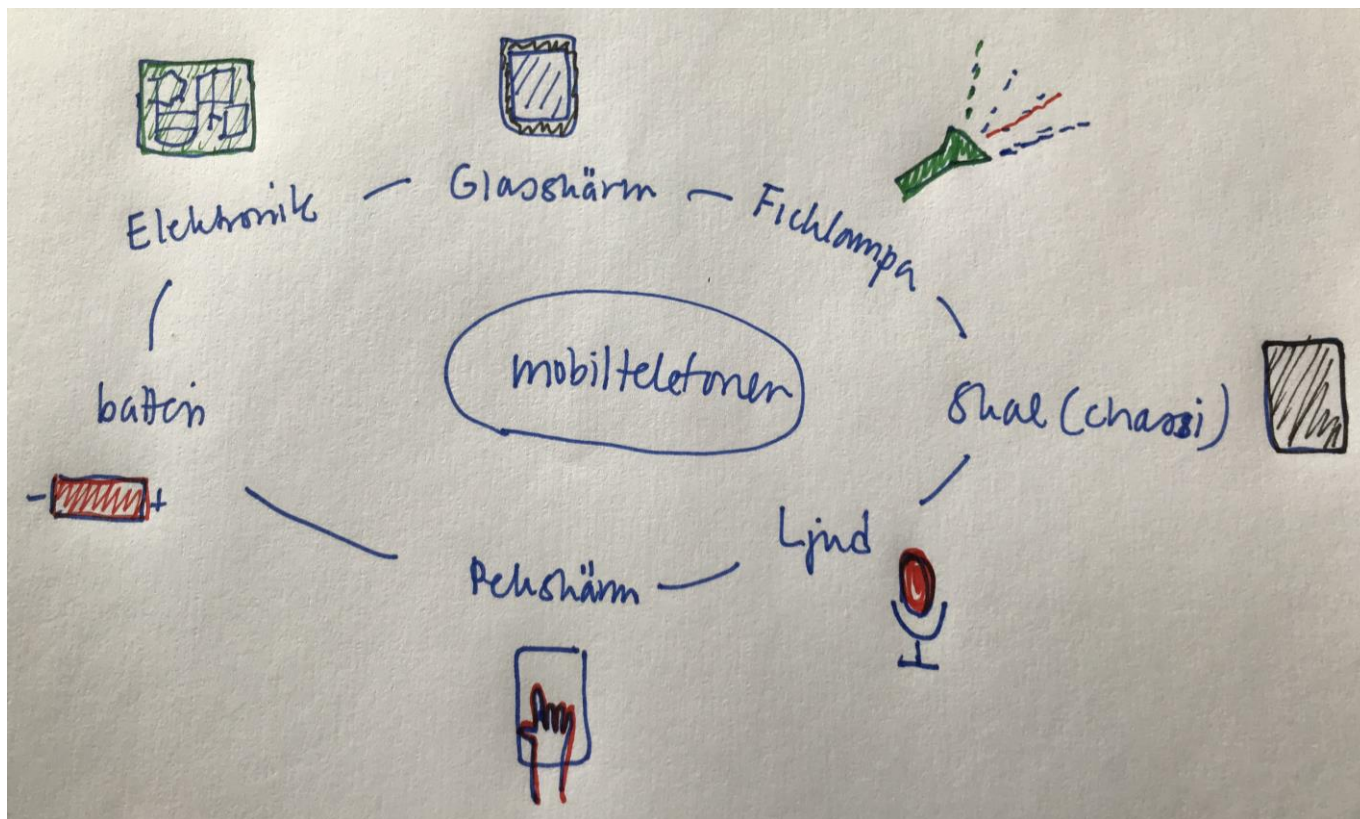 Elektronik
Glasskärm
Ficklampa
batteri
mobiltelefonen
Skal (chassi)
Ljud
Pekskärm
- +